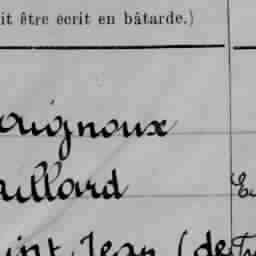 it être écrit en bâtarde.)
ouignoux
aillard
aint Jean (de